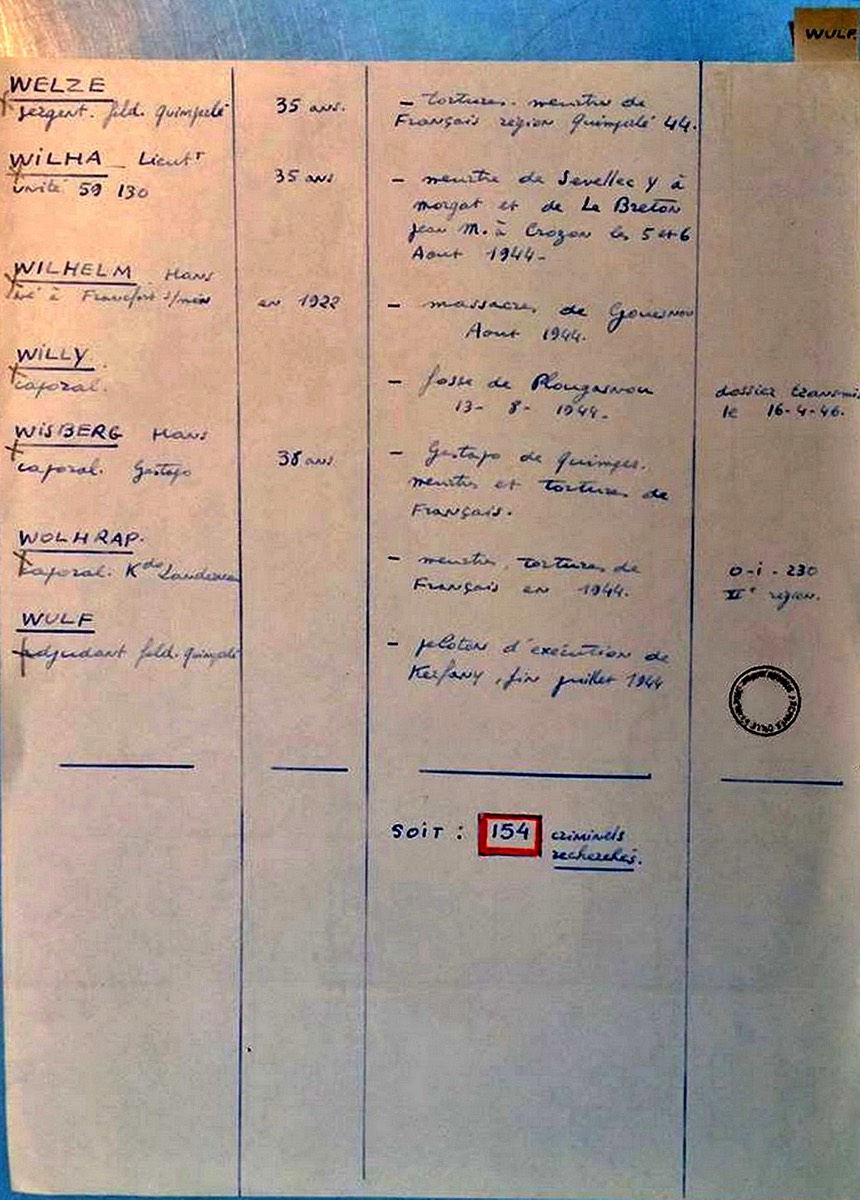 WULF
WELZE
sergent. feld. Quimperlé 35 ans. – tortures. meurtre de
Français région Quimperlé 44.
WILHA Lieutt
unité 59 130 35 ans – meurtre de Sevellec Y à
morgat et de Le Breton
jean M. à Crozon les 5 et 6
Aout 1944-
WILHELM Hans
né à Francfort s/mein en 1922 – massacres de Gouesnou
Aout 1944.
WILLY.
caporal. – fosse de Plougasnou dossier transmis
13- 8- 1944- le 16-4-46.
WISBERG Hans
caporal. Gestapo 38 ans. – Gestapo de quimper.
meurtres et tortures de
Français.
WOLHRAP.
caporal. Kdo Landerneau – meurtres, tortures de 0-i-230
Français en 1944. II° région.
WULF
adjudant feld. quimperlé – peloton d'exécution de
Kerfany, fin juillet 1944
SOIT : 154 criminels
recherchés.